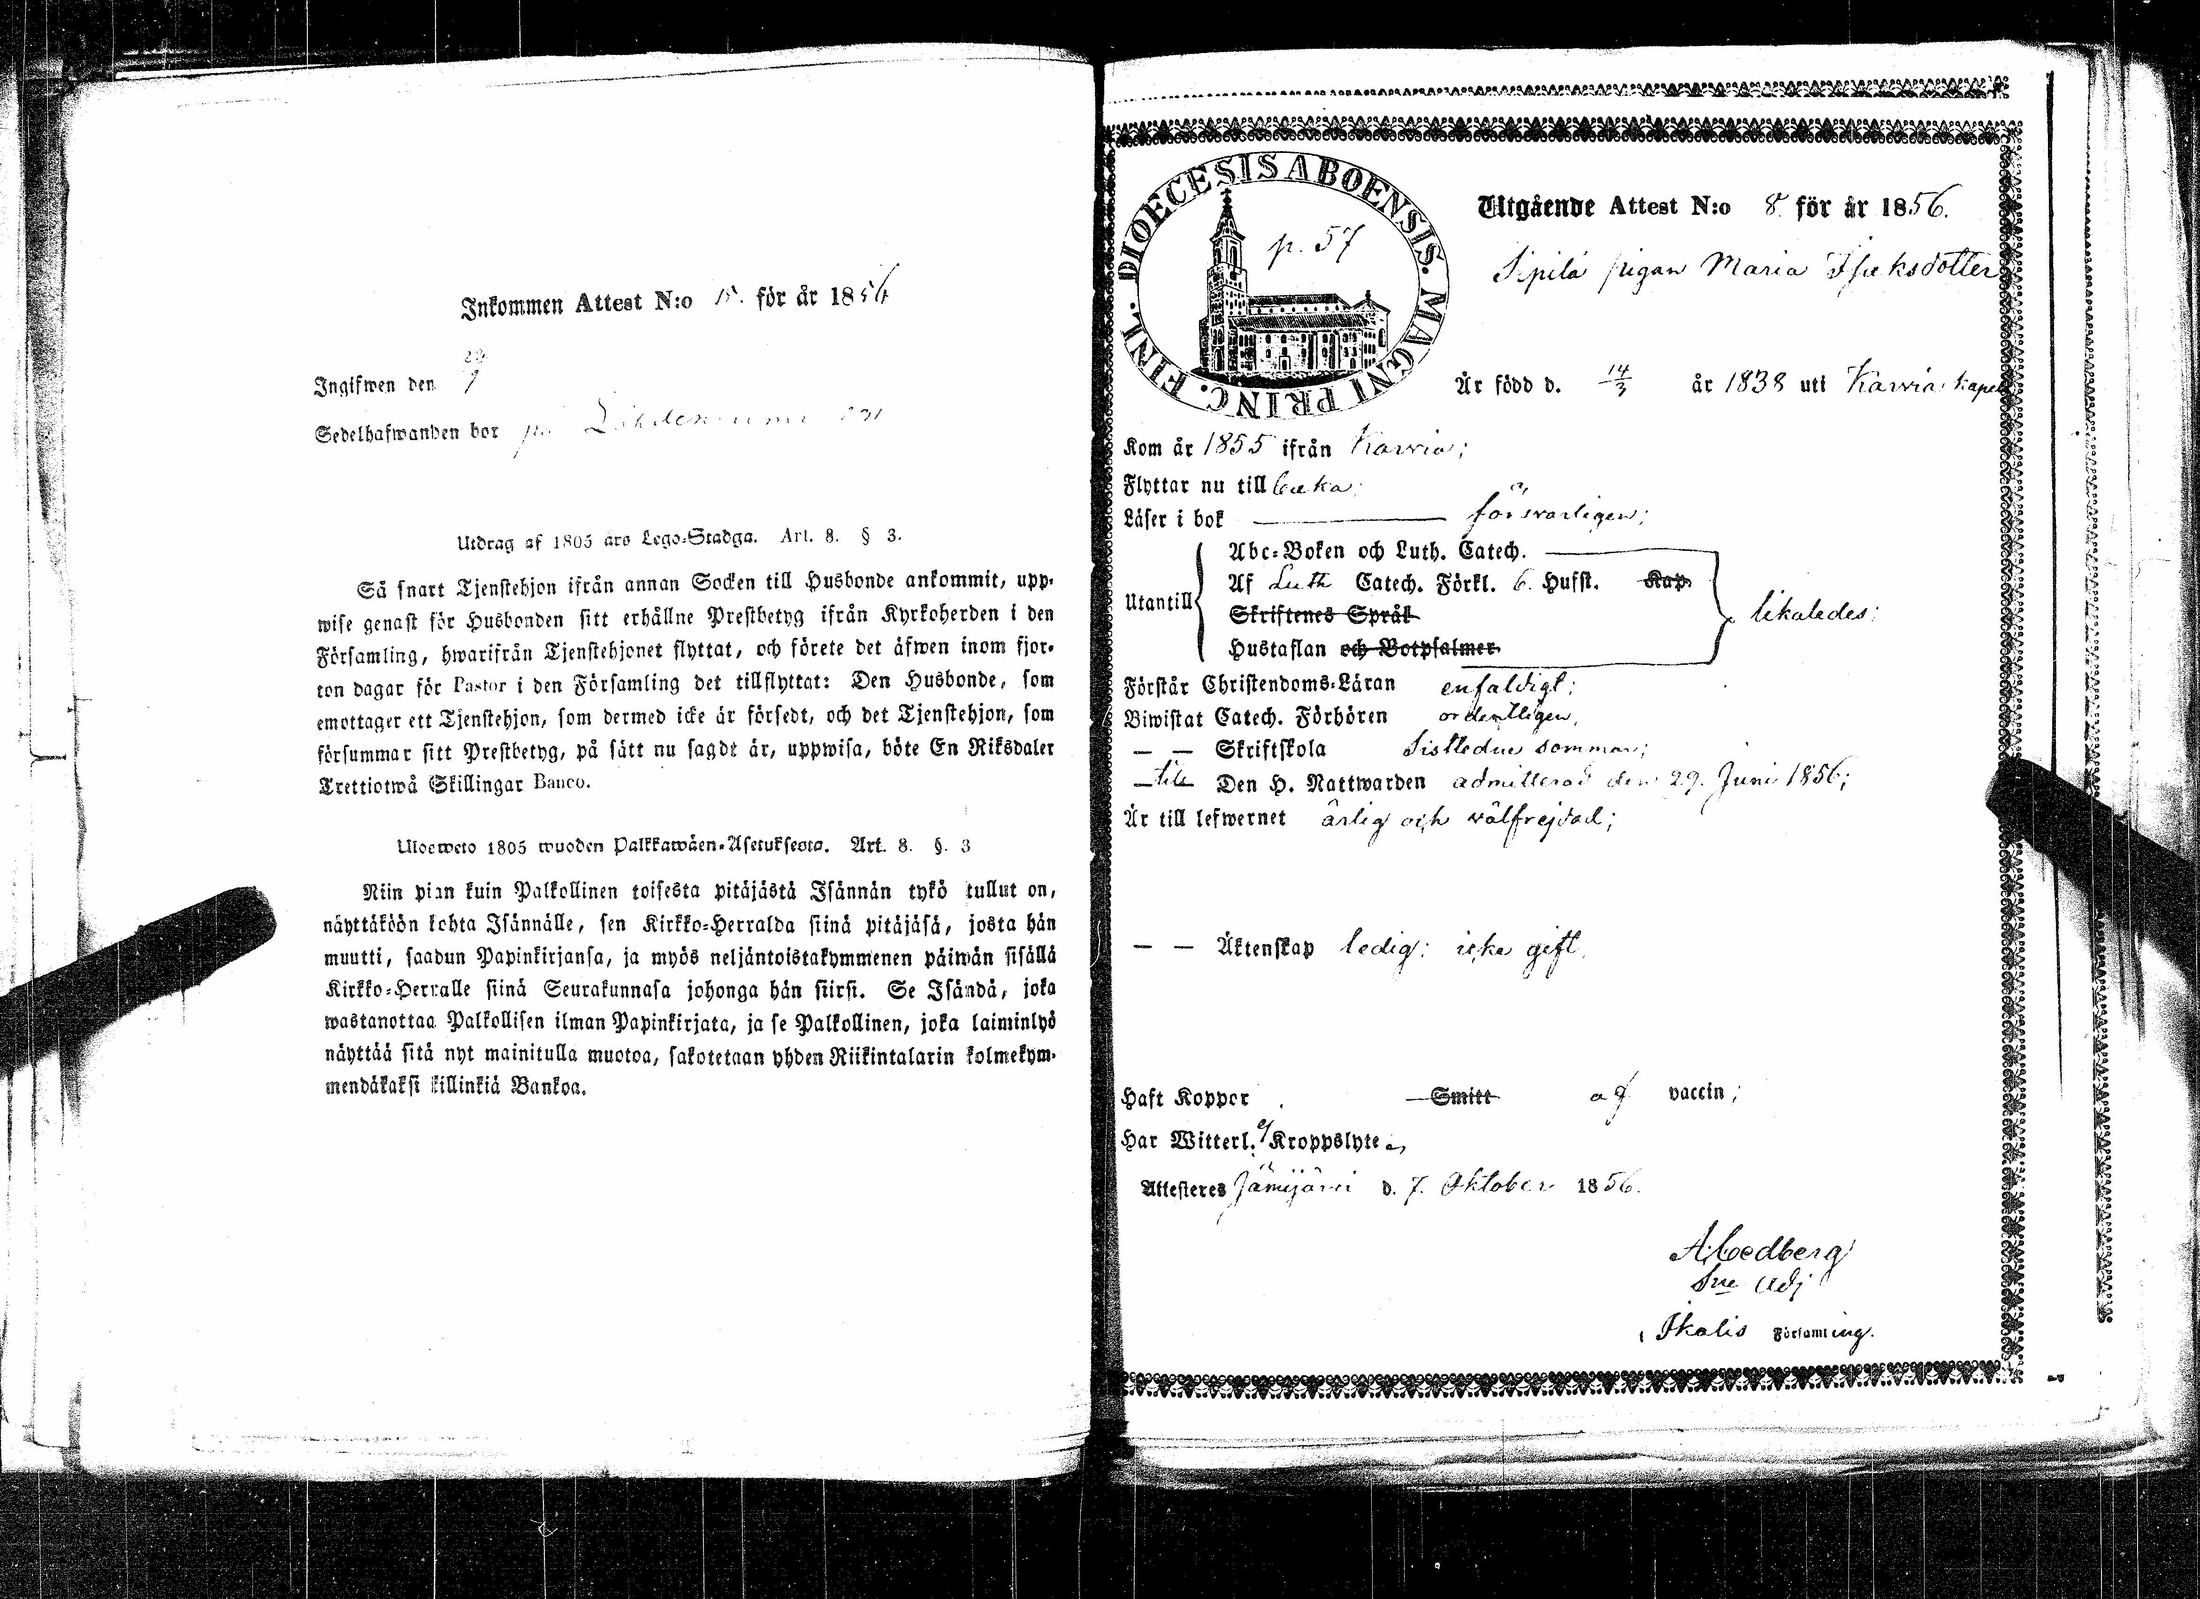 Inkommen Attest N:o 15. för år 1856
Ingifwen den
Sedelhafwanden bor på
Utdrag af 1805 års Lego-Stadga. Art. 8. § 3.
Så snart Tjenstehjon ifrån annan Socken till Husbonde ankommit, upp-
wise genast för Husbonden sitt erhållne Prestbetyg ifrån Kyrkoherden i den
Församling, hwarifrån Tjenstehjonet flyttat, och förete det äfwen inom fjor-
ton dagar för Pastor i den Församling det tillflyttat: Den Husbonde, som
emottager ett Tjenstehjon, som dermed icke är försedt, och det Tjenstehjon, som
försummar sitt Prestbetyg, på sätt nu sagdt är, uppwisa, böte En Riksdaler
Trettiotwå Skillingar Banco.
Ulosweto 1805 wuoden Palkkawäen-Asetuksesta. Art. 8. §. 3
Niin pian kuin Palkollinen toisesta pitäjästä Isännän tykö tullut on,
näyttäköön kohta Isännälle, sen Kirkko-Herralda siinä pitäjäsä, josta hän
muutti, saadun Papinkirjansa, ja myös neljäntoistakymmenen päiwän sisällä
Kirkko-Herralle siinä Seurakunnasa johonga hän siirsi. Se Isändä, joka
wastanottaa Palkollisen ilman Papinkirjata, ja se Palkollinen, joka laiminlyö
näyttää sitä nyt mainitulla muotoa, sakotetaan yhden Riikintalarin kolmekym-
mendäkaksi killinkiä Bankoa.
DIOECESIS ABOENSIS. MAGNI PRINC. FINL.
p. 57
Utgående Attest N:o 8 för år 1856.
Sipilä pigan Maria Isaksdotter
Är född d. 14/3 år 1838 uti Karvia kapell
Kom år 1855 ifrån Karvia;
Flyttar nu till
Läser i bok försvarligen;
Abc-Boken och Luth. Catech.
Utantill Af Luth Catech. Förkl. 6. Hufst. Kap. likaledes;
Skriftenes Språk
Hustaflan och Botpsalmer
Förstår Christendoms-Läran enfaldigt;
Biwistat Catech. Förhören ordentligen,
— — Skriftskola sistledne sommar;
— till Den H. Nattwarden admitterad den 29. Juni 1856;
Är till lefwernet ärlig och välfrejdad;
— — Äktenskap ledig: icke gift.
Haft Koppor Smitt af vaccin;
Har Witterl. ej Kroppslyte
Attesteres Jämijärvi d. 7. Oktober 1856.
A. Cedberg
Sne Adj
i Ikalis Församling.